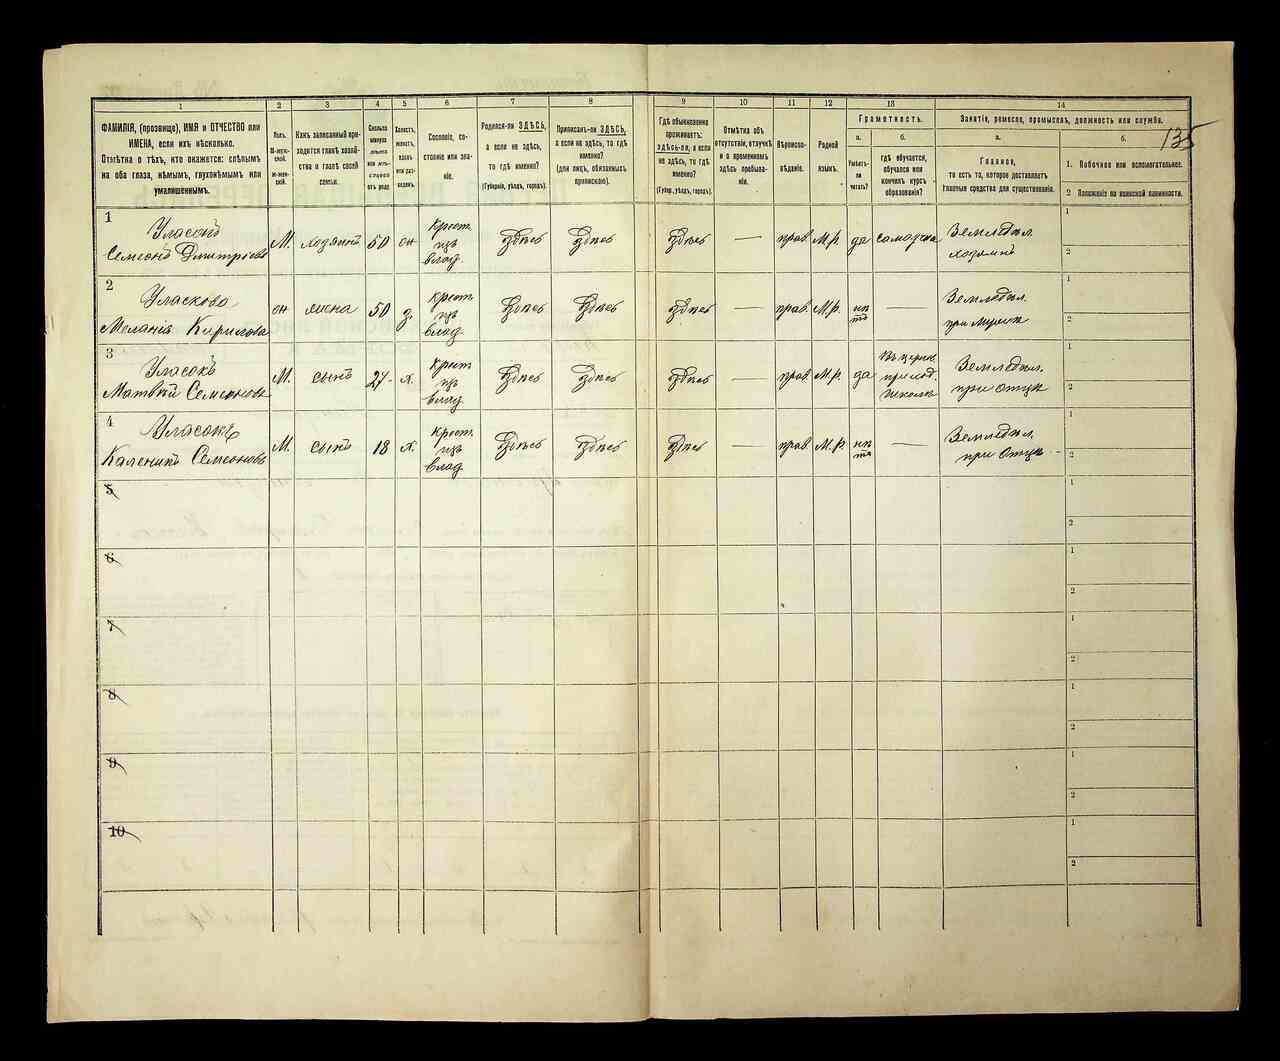 1
2
3
4
5
6
7
8
9
10
11
12
13
14
ФАМИЛІЯ, (прозвище), ИМЯ и ОТЧЕСТВО или
ИМЕНА, если ихъ нѣсколько.
Отмѣтка о тѣхъ, кто окажется: слѣпымъ
на оба глаза, нѣмымъ, глухонѣмымъ или
умалишеннымъ.
Полъ.
М-муж-
ской.
Ж-жен-
скій.
Какъ записанный при-
ходится главѣ хозяй-
ства и главѣ своей
семьи.
Сколько
минуло
лѣтъ
или мѣ-
сяцевъ
отъ роду.
Холостъ,
женатъ,
вдовъ
или раз-
веденъ.
Сословіе, со-
стояніе или зва-
ніе.
Родился-ли ЗДѢСЬ,
а если не здѣсь,
то гдѣ именно?
(Губернія, уѣздъ, городъ).
Приписанъ-ли ЗДѢСЬ,
а если не здѣсь, то гдѣ
именно?
(для лицъ, обязанныхъ
припискою).
Гдѣ обыкновенно
проживаетъ:
ЗДѢСЬ-ли, а если
не здѣсь, то гдѣ
именно?
(Губ., уѣздъ, городъ).
Отмѣтка объ
отсутствіи, отлучкѣ
и о временномъ
здѣсь пребыва-
ніи.
Вѣроиспо-
вѣданіе.
Родной
языкъ.
Грамотность.
а.
б.
Умѣетъ-
ли
читать?
гдѣ обучается,
обучался или
кончилъ курсъ
образованія?
Занятіе, ремесло, промыселъ, должность или служба.
а.
б.
Главное,
то есть то, которое доставляетъ
главныя средства для существованія.
1. Побочное или вспомогательное.
2 Положеніе по воинской повинности.
135
1
Уласокъ
Семеонъ Дмитріевъ
М.
хозяинъ
50
он
Крест.
изъ
влад.
Здѣсь
Здѣсь
Здѣсь
—
прав.
М.р.
да
самоучка
Земледѣл.
хозяинъ
1
2
2
Уласкова
Меланія Кирилова
жена
50
з.
Крест.
изъ
влад.
Здѣсь
Здѣсь
Здѣсь
—
прав.
М.р.
нѣ
тъ
—
Земледѣл.
при мужѣ
1
2
3
Уласокъ
Матвѣй Семеоновъ
М.
сынъ
27
х.
Крест.
изъ
влад.
Здѣсь
Здѣсь
Здѣсь
—
прав.
М.р.
да
Въ церков.
приход.
школѣ
Земледѣл.
при отцѣ
1
2
4
Уласокъ
Каленикъ Семеоновъ
М.
сынъ
18
х.
Крест.
изъ
влад.
Здѣсь
Здѣсь
Здѣсь
—
прав.
М.р.
нѣ
тъ
—
Земледѣл.
при Отцѣ
1
2
5
1
2
6
1
2
7
1
2
8
1
2
9
1
2
10
1
2